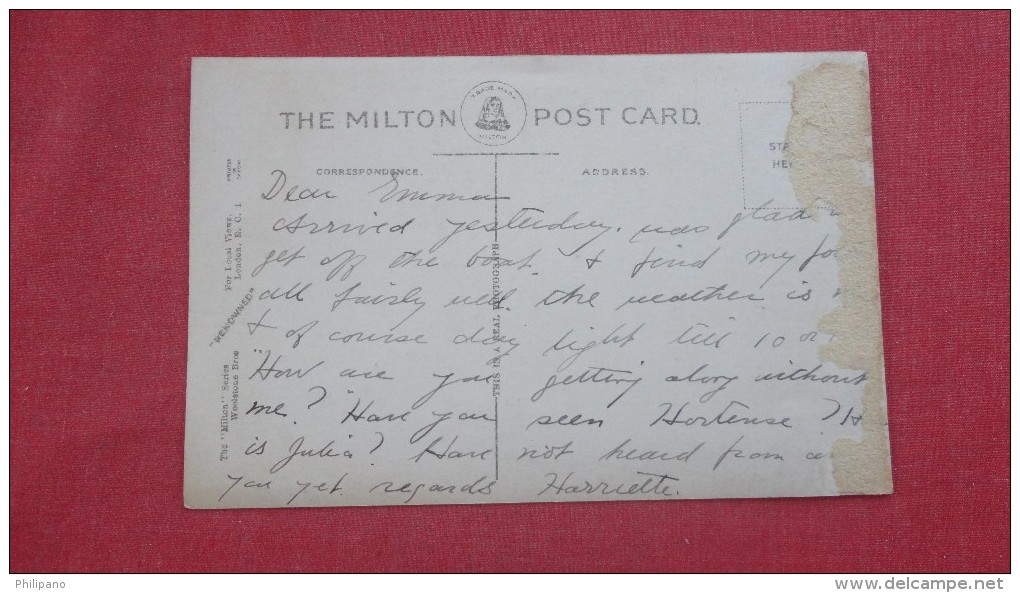 THE MILTON POST CARD.
TRADE MARK
MILTON
CORRESPONDENCE.
ADDRESS.
STA
HE
Dear Emma
Arrived yesterday. was glad
get off the boat. & find my fo
all fairly well. the weather is
& of course day light till 10 or
How are you getting along without
me? Have you seen Hortense? H
is Julia? Have not heard from
you yet. regards Harriette.
THIS IS A REAL PHOTOGRAPH
The "Milton" Series
Woolstone Bros
"RENOWNED"
For Local Views,
London, E. C. 1
Philipano
www.delcampe.net